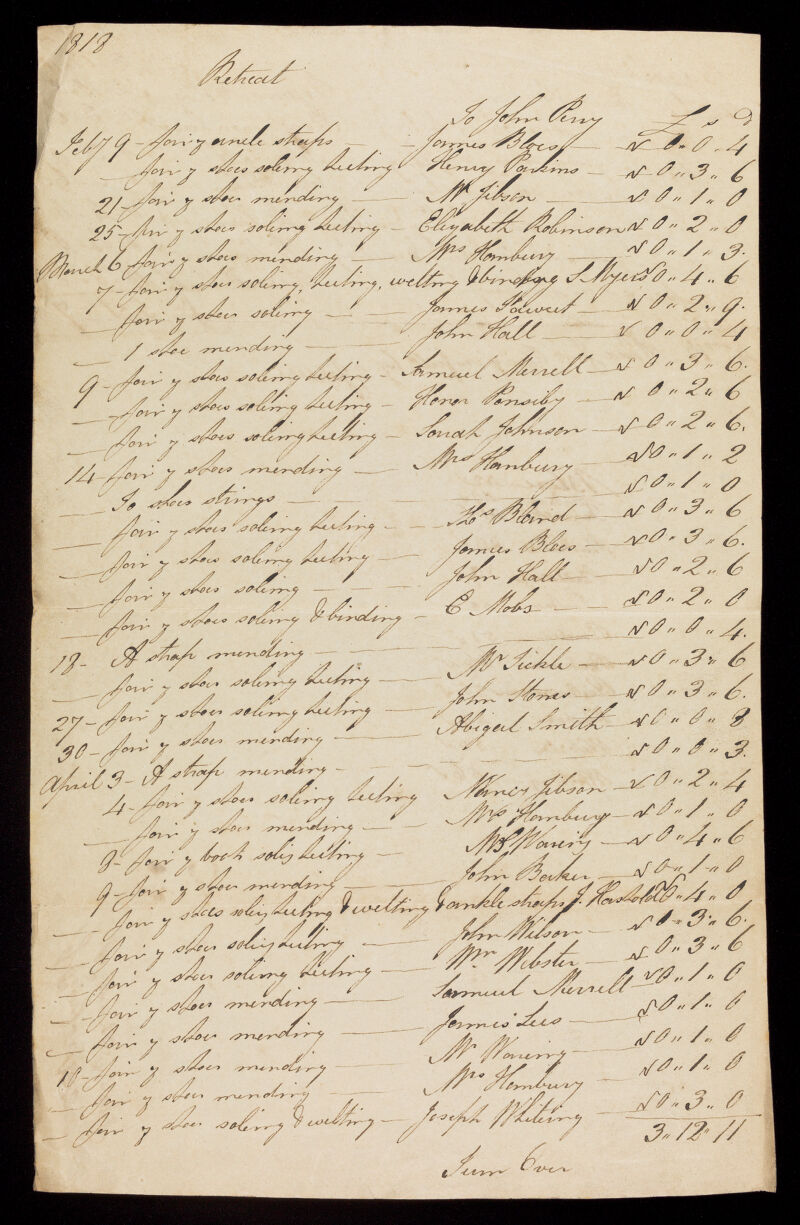 1818
Retreat
To John Perry £ s D
Feby 9 - pair y ancle straps — James Bloes — √ 0 " 0 " 4
— pair y shoes soleing heeling Henry Parkins — √ 0 " 3 " 6
21 - pair y shoes mending — Mr Jibson √ 0 " 1 " 0
25 - pair y shoes soleing heeling - Elizabeth Robinson √ 0 " 2 " 0
March 6 pair y shoes mending — Mrs Hanbury — √ 0 " 1 " 3
7 - pair y shoes soleing, heeling, welting & binding S Myers √ 0 " 4 " 6
— pair y shoes soleing — James — √ 0 " 2 " 9
— 1 shoe mending — John Hall — √ 0 " 0 " 4
9 - pair y shoes soleing heeling - Samuel Merrell — √ 0 " 3 " 6
— pair y shoes soleing heeling - Honor Ponsiby — √ 0 " 2 " 6
— pair y shoes soleing heeling — Sarah Johnson — √ 0 " 2 " 6
14 - pair y shoes mending — Mrs Hanbury √ 0 " 1 " 2
— To shoes strings — √ 0 " 1 " 0
— pair y shoes soleing heeling — Thos Bland — √ 0 " 3 " 6
— pair y shoes soleing heeling — James Bloes — √ 0 " 3 " 6
— pair y shoes soleing — John Hall — √ 0 " 2 " 6
— pair y shoes soleing & binding - E Mobs — √ 0 " 2 " 0
18 - A strap mending — √ 0 " 0 " 4
— pair y shoes soleing heeling — Mr Sickle — √ 0 " 3 " 6
27 - pair y shoes soleing heeling — John Stones — √ 0 " 3 " 6
30 - pair y shoes mending — Abigeal Smith — √ 0 " 0 " 8
April 3 - A strap mending — √ 0 " 0 " 3
4 - pair y shoes soleing heeling Nancy Jibson — √ 0 " 2 " 4
— pair y shoes mending — Mrs Hanbury — √ 0 " 1 " 0
8 - pair y boots heeling — Waring — √ 0 " 4 " 6
9 - pair y shoes mending — John Baker — √ 0 " 1 " 0
— pair y shoes heeling & welting & ankle straps J. √ 0 " 4 " 0
— pair y shoes heeling — John Wilson — √ 0 " 3 " 6
— pair y shoes soleing heeling — Wm Webster — √ 0 " 3 " 6
— pair y shoes mending — Samuel Merrell √ 0 " 1 " 0
— pair y shoes mending — James Lees — √ 0 " 1 " 0
10 - pair y shoes mending — Mr Waring — √ 0 " 1 " 0
— pair y shoes mending — Mrs Hanbury √ 0 " 1 " 0
— pair y shoes soleing & welting — Joseph Whiting — √ 0 " 3 " 0
3 " 12 " 11
Turn Over